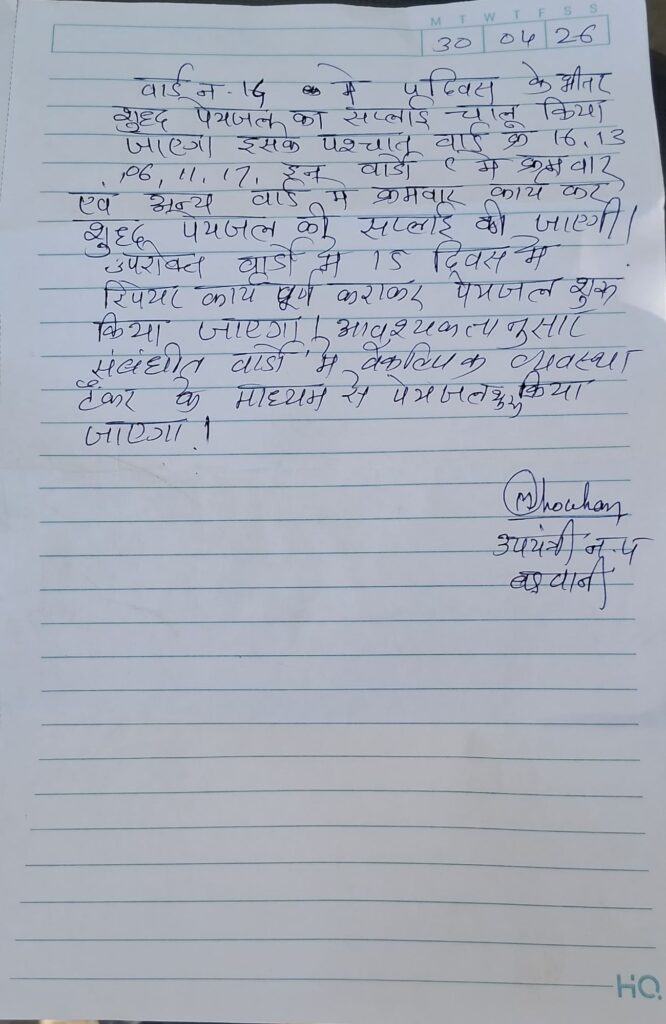 M T W T F S S
30 04 26
वार्ड न. 14 मे 4 दिवस के भीतर
शुध्द पेयजल का सप्लाई चालू किया
जाएगा इसके पश्चात वार्ड क्र 16, 13
, 06, 11, 17, इन वार्डो मे क्रमवार
एवं अन्य वार्ड मे क्रमवार कार्य कर
शुध्द पेयजल की सप्लाई की जाएगी।
उपरोक्त वार्डो मे 15 दिवस मे
रिपेयर कार्य पूर्ण कराकर पेयजल शुरू
किया जाएगा। आवश्यकतानुसार
संबंधीत वार्डो मे वैकल्पिक व्यवस्था
टैंकर के माध्यम से पेयजल शुरू किया
जाएगा।
उपयंत्री न.प
बड़वानी
HQ